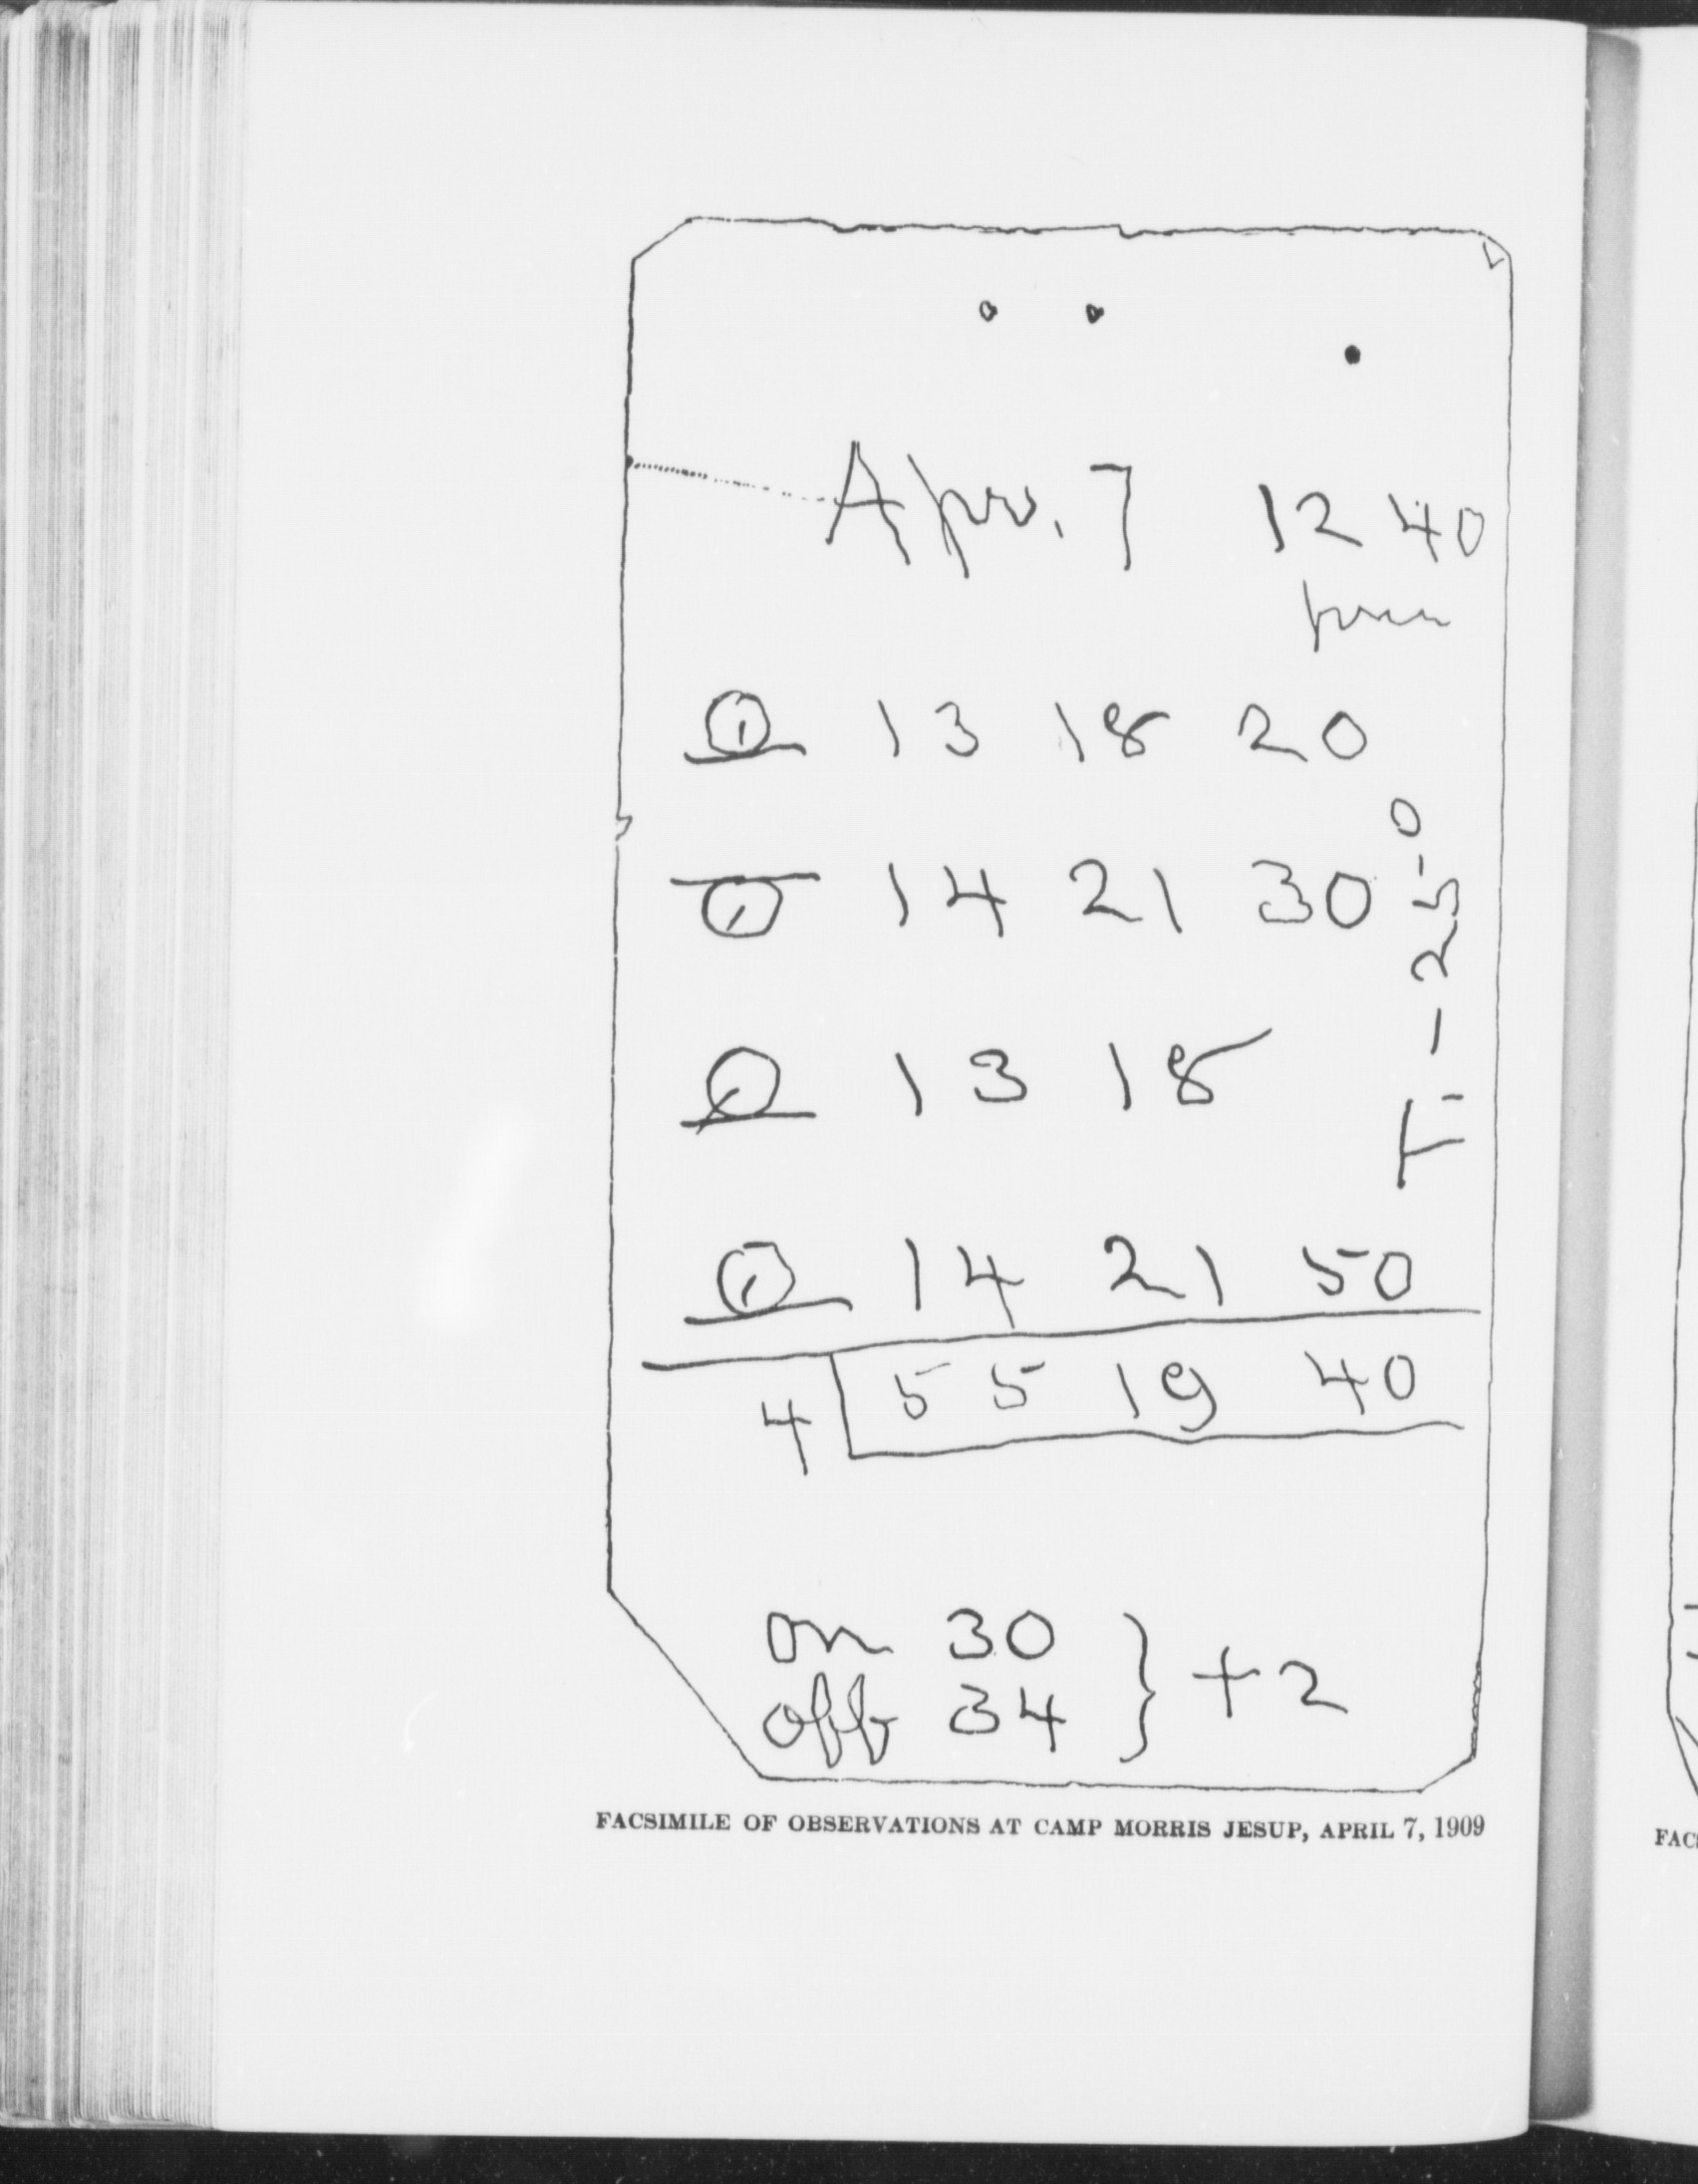 Apr. 7 12 40
pm
13 18 20
14 21 30
13 18
14 21 50
4 55 19 40
T - 25-0
on 30
off 34 } + 2
FACSIMILE OF OBSERVATIONS AT CAMP MORRIS JESUP, APRIL 7, 1909
FAC